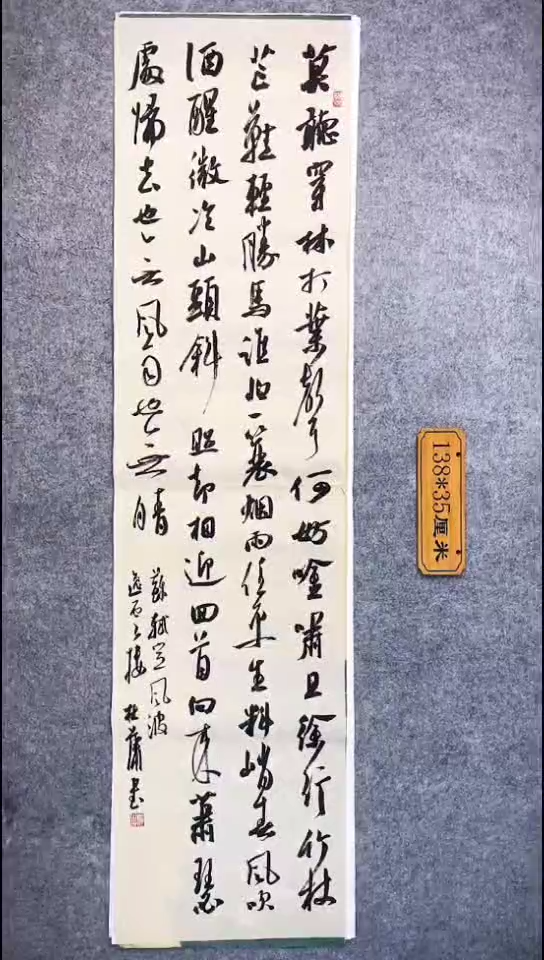 莫聽穿林打葉聲何妨唫嘯且徐行竹杖
芒鞵輕勝馬誰怕一蓑烟雨任平生料峭春風吹
酒醒微冷山頭斜照却相迎回首向来蕭瑟
處歸去也無風雨也無晴
蘇軾定風波
杜蘅書
138*35厘米